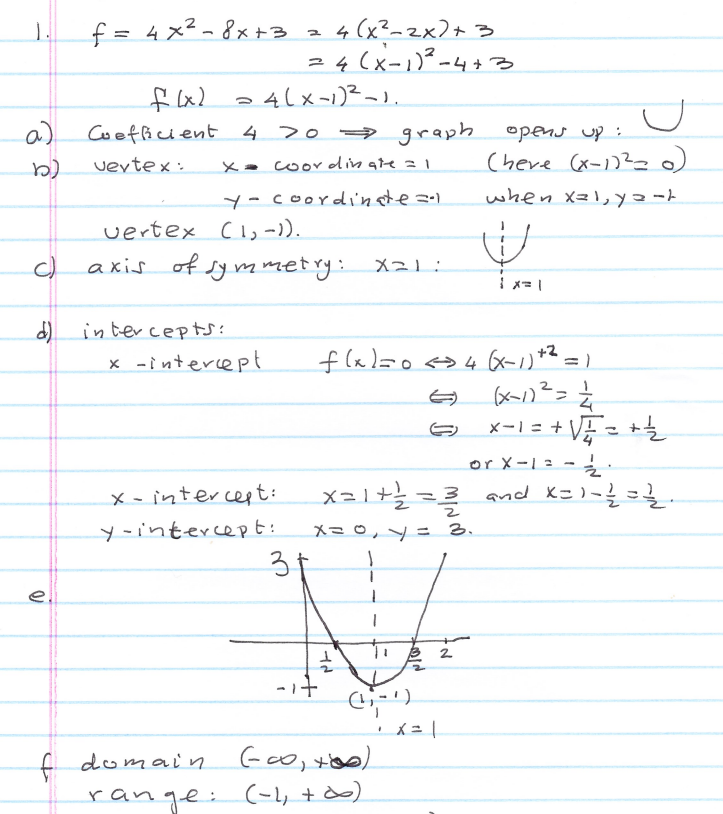 1. f = 4x² - 8x + 3 = 4(x² - 2x) + 3
= 4(x-1)² - 4 + 3
f(x) = 4(x-1)² - 1.
a) Coefficient 4 > 0 ⟹ graph opens up :
b) vertex: x - coordinate = 1 (here (x-1)² = 0)
y - coordinate = -1 when x=1, y = -1
vertex (1, -1).
c) axis of symmetry: x = 1 :
x = 1
d) intercepts:
x - intercept f(x) = 0 ⟺ 4(x-1)⁺² = 1
⟺ (x-1)² = 1/4
⟺ x-1 = +√(1/4) = +1/2
or x-1 = -1/2.
x - intercept: x = 1 + 1/2 = 3/2 and x = 1 - 1/2 = 1/2.
y - intercept: x = 0, y = 3.
e.
3
1/2 1 3/2 2
-1
(1, -1)
x = 1
f domain (-∞, +∞)
range: (-1, +∞)